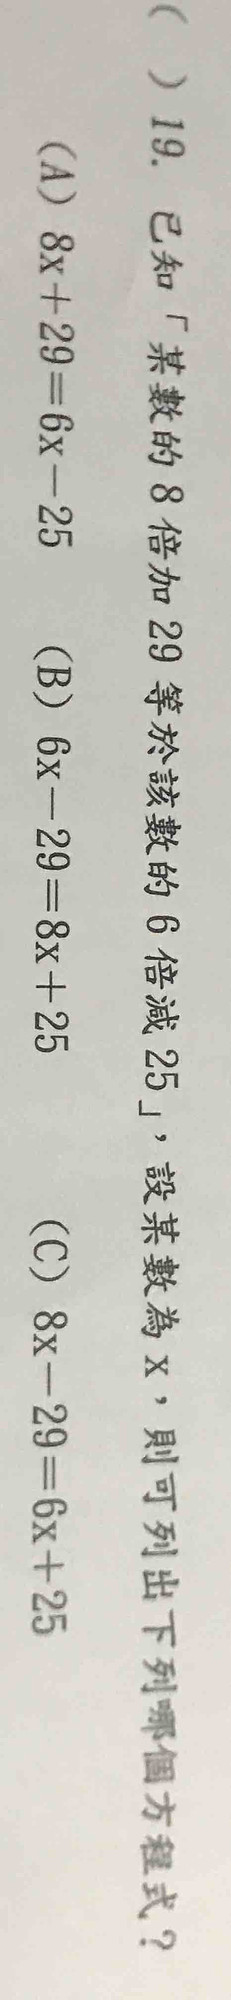 （　）19. 已知「某數的 8 倍加 29 等於該數的 6 倍減 25」，設某數為 x，則可列出下列哪個方程式？
(A) 8x＋29＝6x－25　(B) 6x－29＝8x＋25　(C) 8x－29＝6x＋25